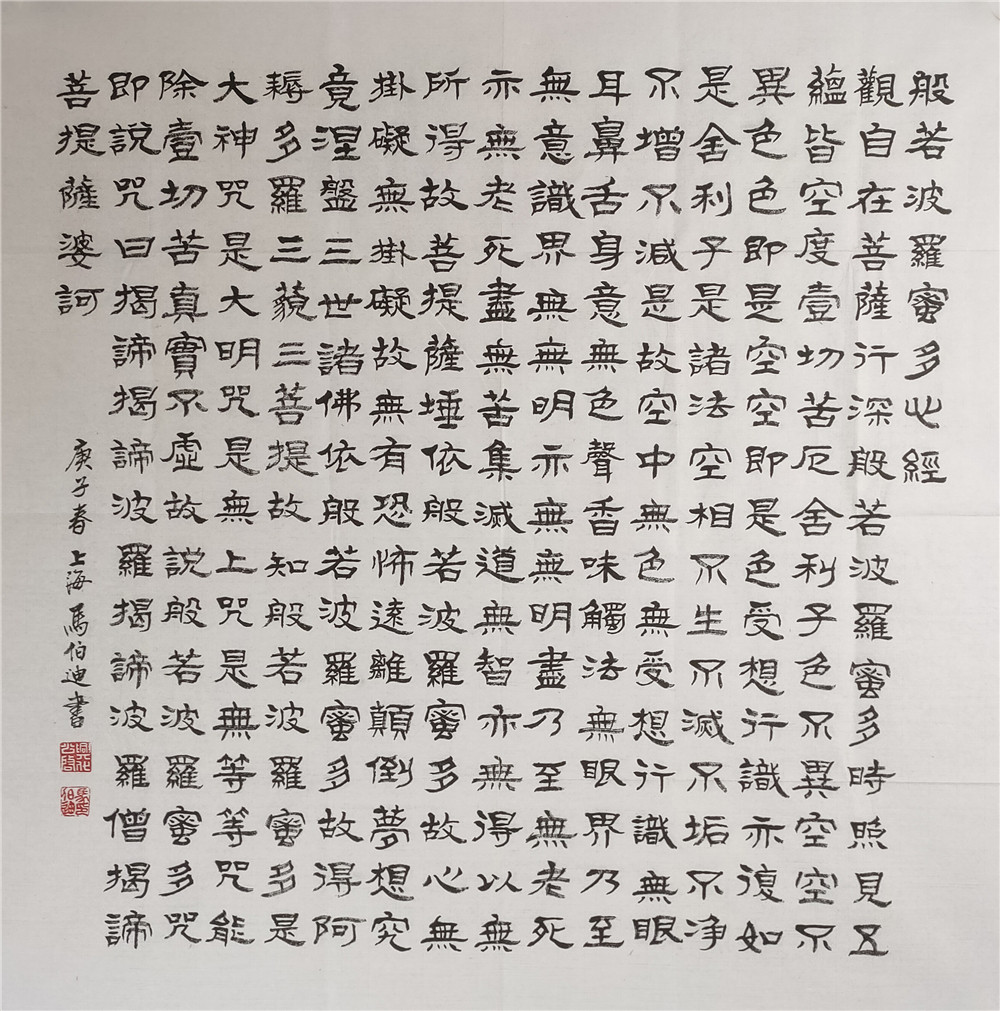 般若波羅蜜多心經
觀自在菩薩行深般若波羅蜜多時照見五
蘊皆空度壹切苦厄舍利子色不異空空不
異色色即是空空即是色受想行識亦復如
是舍利子是諸法空相不生不滅不垢不净
不增不減是故空中無色無受想行識無眼
耳鼻舌身意無色聲香味觸法無眼界乃至
無意識界無無明亦無無明盡乃至無老死
亦無老死盡無苦集滅道無智亦無得以無
所得故菩提薩埵依般若波羅蜜多故心無
掛礙無掛礙故無有恐怖遠離顛倒夢想究
竟涅盤三世諸佛依般若波羅蜜多故得阿
耨多羅三藐三菩提故知般若波羅蜜多是
大神咒是大明咒是無上咒是無等等咒能
除壹切苦真實不虛故說般若波羅蜜多咒
即說咒曰揭諦揭諦波羅揭諦波羅僧揭諦
菩提薩婆訶
庚子春上海馬伯迪書